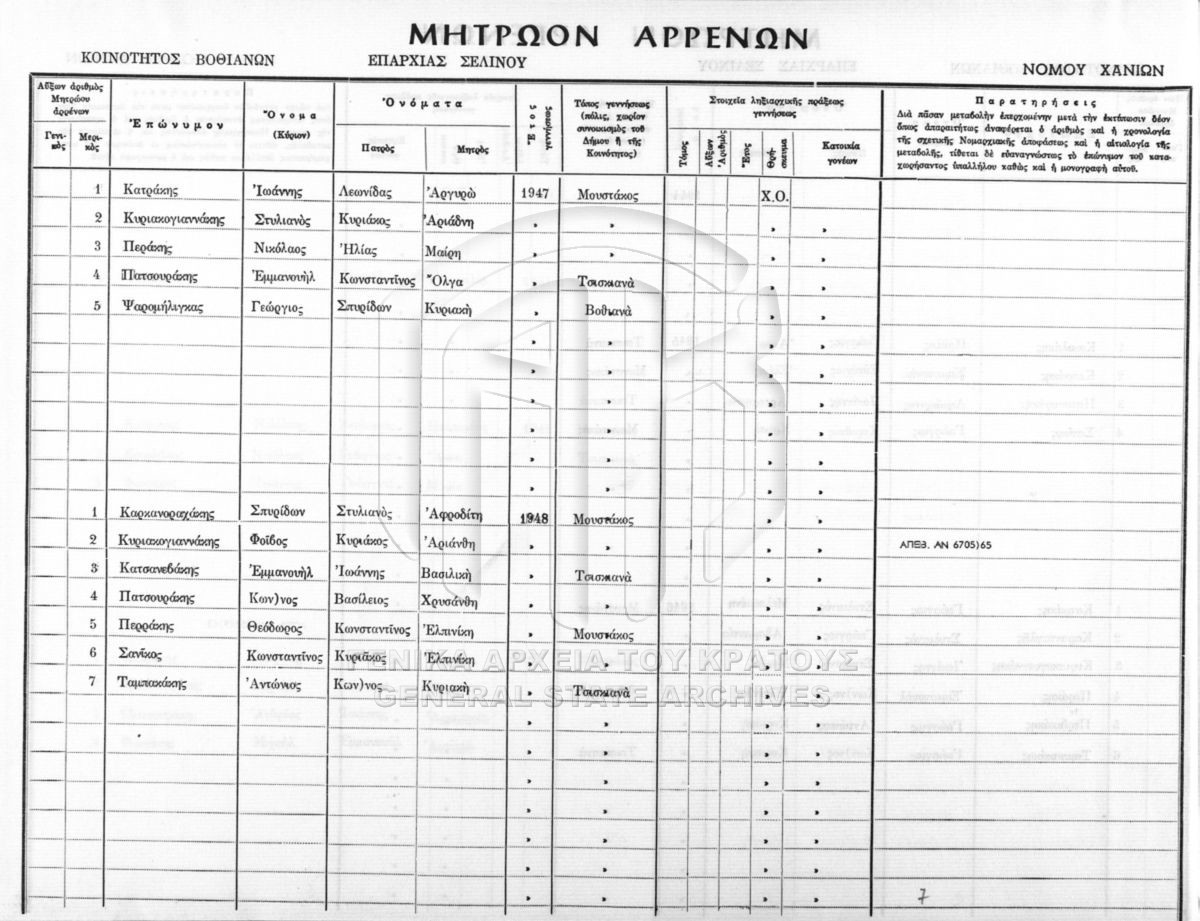 ΜΗΤΡΩΟΝ ΑΡΡΕΝΩΝ
ΚΟΙΝΟΤΗΤΟΣ ΒΟΘΙΑΝΩΝ ΕΠΑΡΧΙΑΣ ΣΕΛΙΝΟΥ ΝΟΜΟΥ ΧΑΝΙΩΝ
Αὔξων ἀριθμὸς Μητρώου ἀρρένων
Γενικὸς Μερικὸς
Ἐπώνυμον
Ὄνομα (Κύριον)
Ὀνόματα
Πατρὸς Μητρὸς
Ἔτος γεννήσεως
Τόπος γεννήσεως (πόλις, χωρίον συνοικισμὸς τοῦ Δήμου ἢ τῆς Κοινότητος)
Στοιχεῖα ληξιαρχικῆς πράξεως γεννήσεως
Τόμος Αὔξων Ἀριθμὸς Ἔτος Θρήσκευμα Κατοικία γονέων
Παρατηρήσεις
Διὰ πᾶσαν μεταβολὴν ἐπερχομένην μετὰ τὴν ἐκτύπωσιν δέον
ὅπως ἀπαραιτήτως ἀναφέρεται ὁ ἀριθμὸς καὶ ἡ χρονολογία
τῆς σχετικῆς Νομαρχιακῆς ἀποφάσεως καὶ ἡ αἰτιολογία τῆς
μεταβολῆς, τίθεται δὲ εὐαναγνώστως τὸ ἐπώνυμον τοῦ κατα-
χωρήσαντος ὑπαλλήλου καθὼς καὶ ἡ μονογραφὴ αὐτοῦ.
1 Κατράκης Ἰωάννης Λεωνίδας Ἀργυρὼ 1947 Μουστάκος Χ.Ο.
2 Κυριακογιαννάκης Στυλιανὸς Κυριάκος Ἀριάδνη » » » »
3 Περάκης Νικόλαος Ἠλίας Μαίρη » » » »
4 Πατσουράκης Ἐμμανουὴλ Κωνσταντῖνος Ὄλγα » Τσισκιανὰ » »
5 Ψαρομήλιγκας Γεώργιος Σπυρίδων Κυριακὴ » Βοθιανὰ » »
» » » »
» » » »
» » » »
» » » »
» » » »
» » » »
1 Καρκανοραχάκης Σπυρίδων Στυλιανὸς Ἀφροδίτη 1948 Μουστάκος » »
2 Κυριακογιαννάκης Φοῖβος Κυριάκος Ἀριάνθη » » » » ΑΠΕΒ. ΑΝ 6705)65
3 Κατσανεβάκης Ἐμμανουὴλ Ἰωάννης Βασιλικὴ » Τσισκιανὰ » »
4 Πατσουράκης Κων)νος Βασίλειος Χρυσάνθη » » » »
5 Περράκης Θεόδωρος Κωνσταντῖνος Ἐλπινίκη » Μουστάκος » »
6 Σανῖκος Κωνσταντῖνος Κυριᾶκος Ἐλπινίκη » » » »
ΓΕΝΙΚΑ ΑΡΧΕΙΑ ΤΟΥ ΚΡΑΤΟΥΣ
7 Ταμπακάκης Ἀντώνιος Κων)νος Κυριακὴ » Τσισκιανὰ » »
GENERAL STATE ARCHIVES
» » » »
» » » »
» » » »
» » » »
» » » »
» » » »
» » » »
7